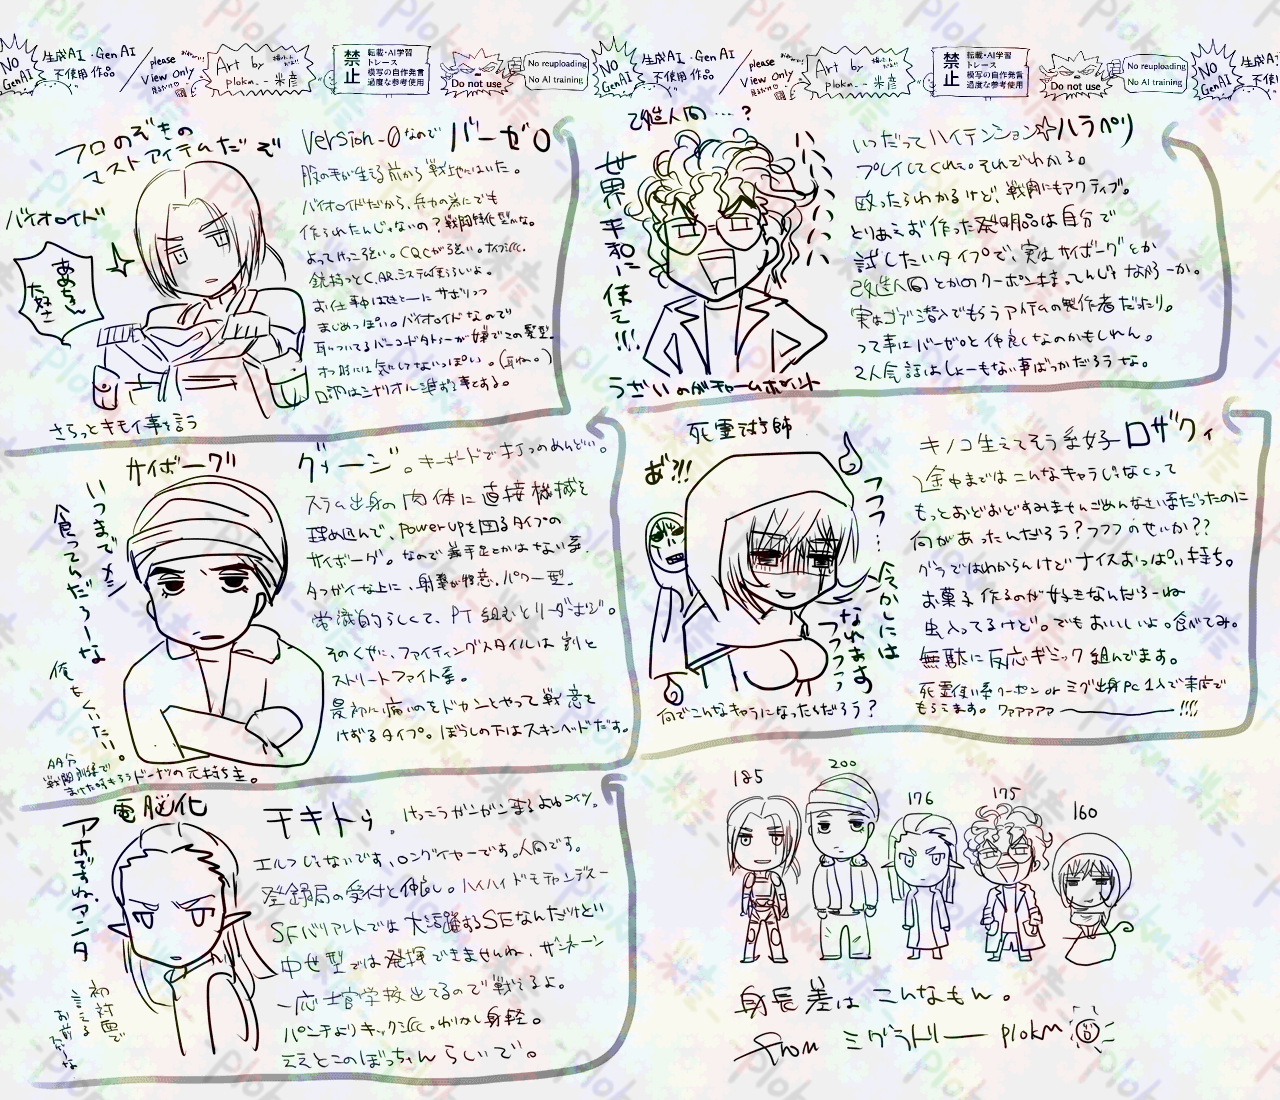 NO GenAI
生成AI・GenAI
不使用作品
please View Only
Art by plokm.-米彦
禁止
転載・AI学習
トレース
模写の自作発言
過度な参考使用
Do not use
No reuploading
No AI training
NO GenAI
生成AI・GenAI
不使用作品
please View Only
Art by plokm.-米彦
禁止
転載・AI学習
トレース
模写の自作発言
過度な参考使用
Do not use
No reuploading
No AI training
NO GenAI
フロのぞきの
マストアイテムだぞ
バイオロイド
さらっとキモイ事を言う
Version-0なので バーゼロ
股の毛が生える前から戦地にいた。
バイオロイドだから、
作られたんじゃないの?戦闘特化型かな。
よってけっこう強い。CQCが強い。ナイフ派。
銃持つとC.A.R.システム
お仕事中はきとーにサボりつつ
まじめっぽい。バイオロイドなので
耳についてるバーコードタトゥーが嫌でこの髪型。
口調はミナリオル準拠事とする。
改造人間…?
世界平和に使え!!!
うざいのがチャームポイント
いつだってハイテンション☆ハラペリ
プレイしてくれ。それでわかる。
殴ったらわかるけど、戦闘にもアクティブ。
とりあえず作った発明品は自分で
試したいタイプで、実はサイボーグとか
改造人間とかのクーポン持ってんじゃなかろーか。
実はゴブ潜入でもらうアイテムの製作者だったり。
って事はバーゼロと仲良しなのかもしれん。
2人会話はしょーもない事ばっかだろうな。
サイボーグ
いつまでメシ
食ってんだろーな
俺もくいたい。
グリージ。キーボードで打つのめんどい。
スラム出身の肉体に直接機械を
埋め込んで、PowerUPを図るタイプの
サイボーグ。なので義手足とかはない系。
タッガイな上に、射撃が得意。パワー型。
常識的らしくて、PT組むとリーダーポジ。
そのくせに、ファイティングスタイルは割と
ストリートファイト系。
最初に痛いのをドカンとやって戦意を
けずるタイプ。ぼうしの下はスキンヘッドだす。
死霊術師
あ?!!
フフフ…
今からしには
なれます
フフフフ
何でこんなキャラになったんだろう?
キノコ生えてそう系女子 ロザクィ
途中まではこんなキャラじゃなくって
もっとおどおどすみませんごめんなさい系だったのに
何があったんだろう?フフフのせいか??
グラではわからんけどナイスおっぱい持ち。
お菓子作るのが好きなんだろーね
虫入ってるけど。でもおいしいよ。食べてみ。
無駄に反応ギミック組んでます。
死霊使い系クーポン or ミグ出身PC1人で来店で
もらえます。ワァァァァー!!!!
電脳化
アホですねアンタ
初対面で
言える
お前
モキトゥ。けっこうガンガン来るよねコイツ。
エルフじゃないです、ロングイヤーです。人間です。
登録局の受付と仲良し。ハイハイドモチャンデスー
SFバリアントでは大活躍するSFなんだけど
中世型では発揮できませんね。ザンネーン
一応士官学校出てるので戦えるよ。
パンチよりキック派。わりかし身軽。
ええとこのぼっちゃんらしいで。
185
200
176
175
160
身長差はこんなもん。
from ミグラトリー plokm